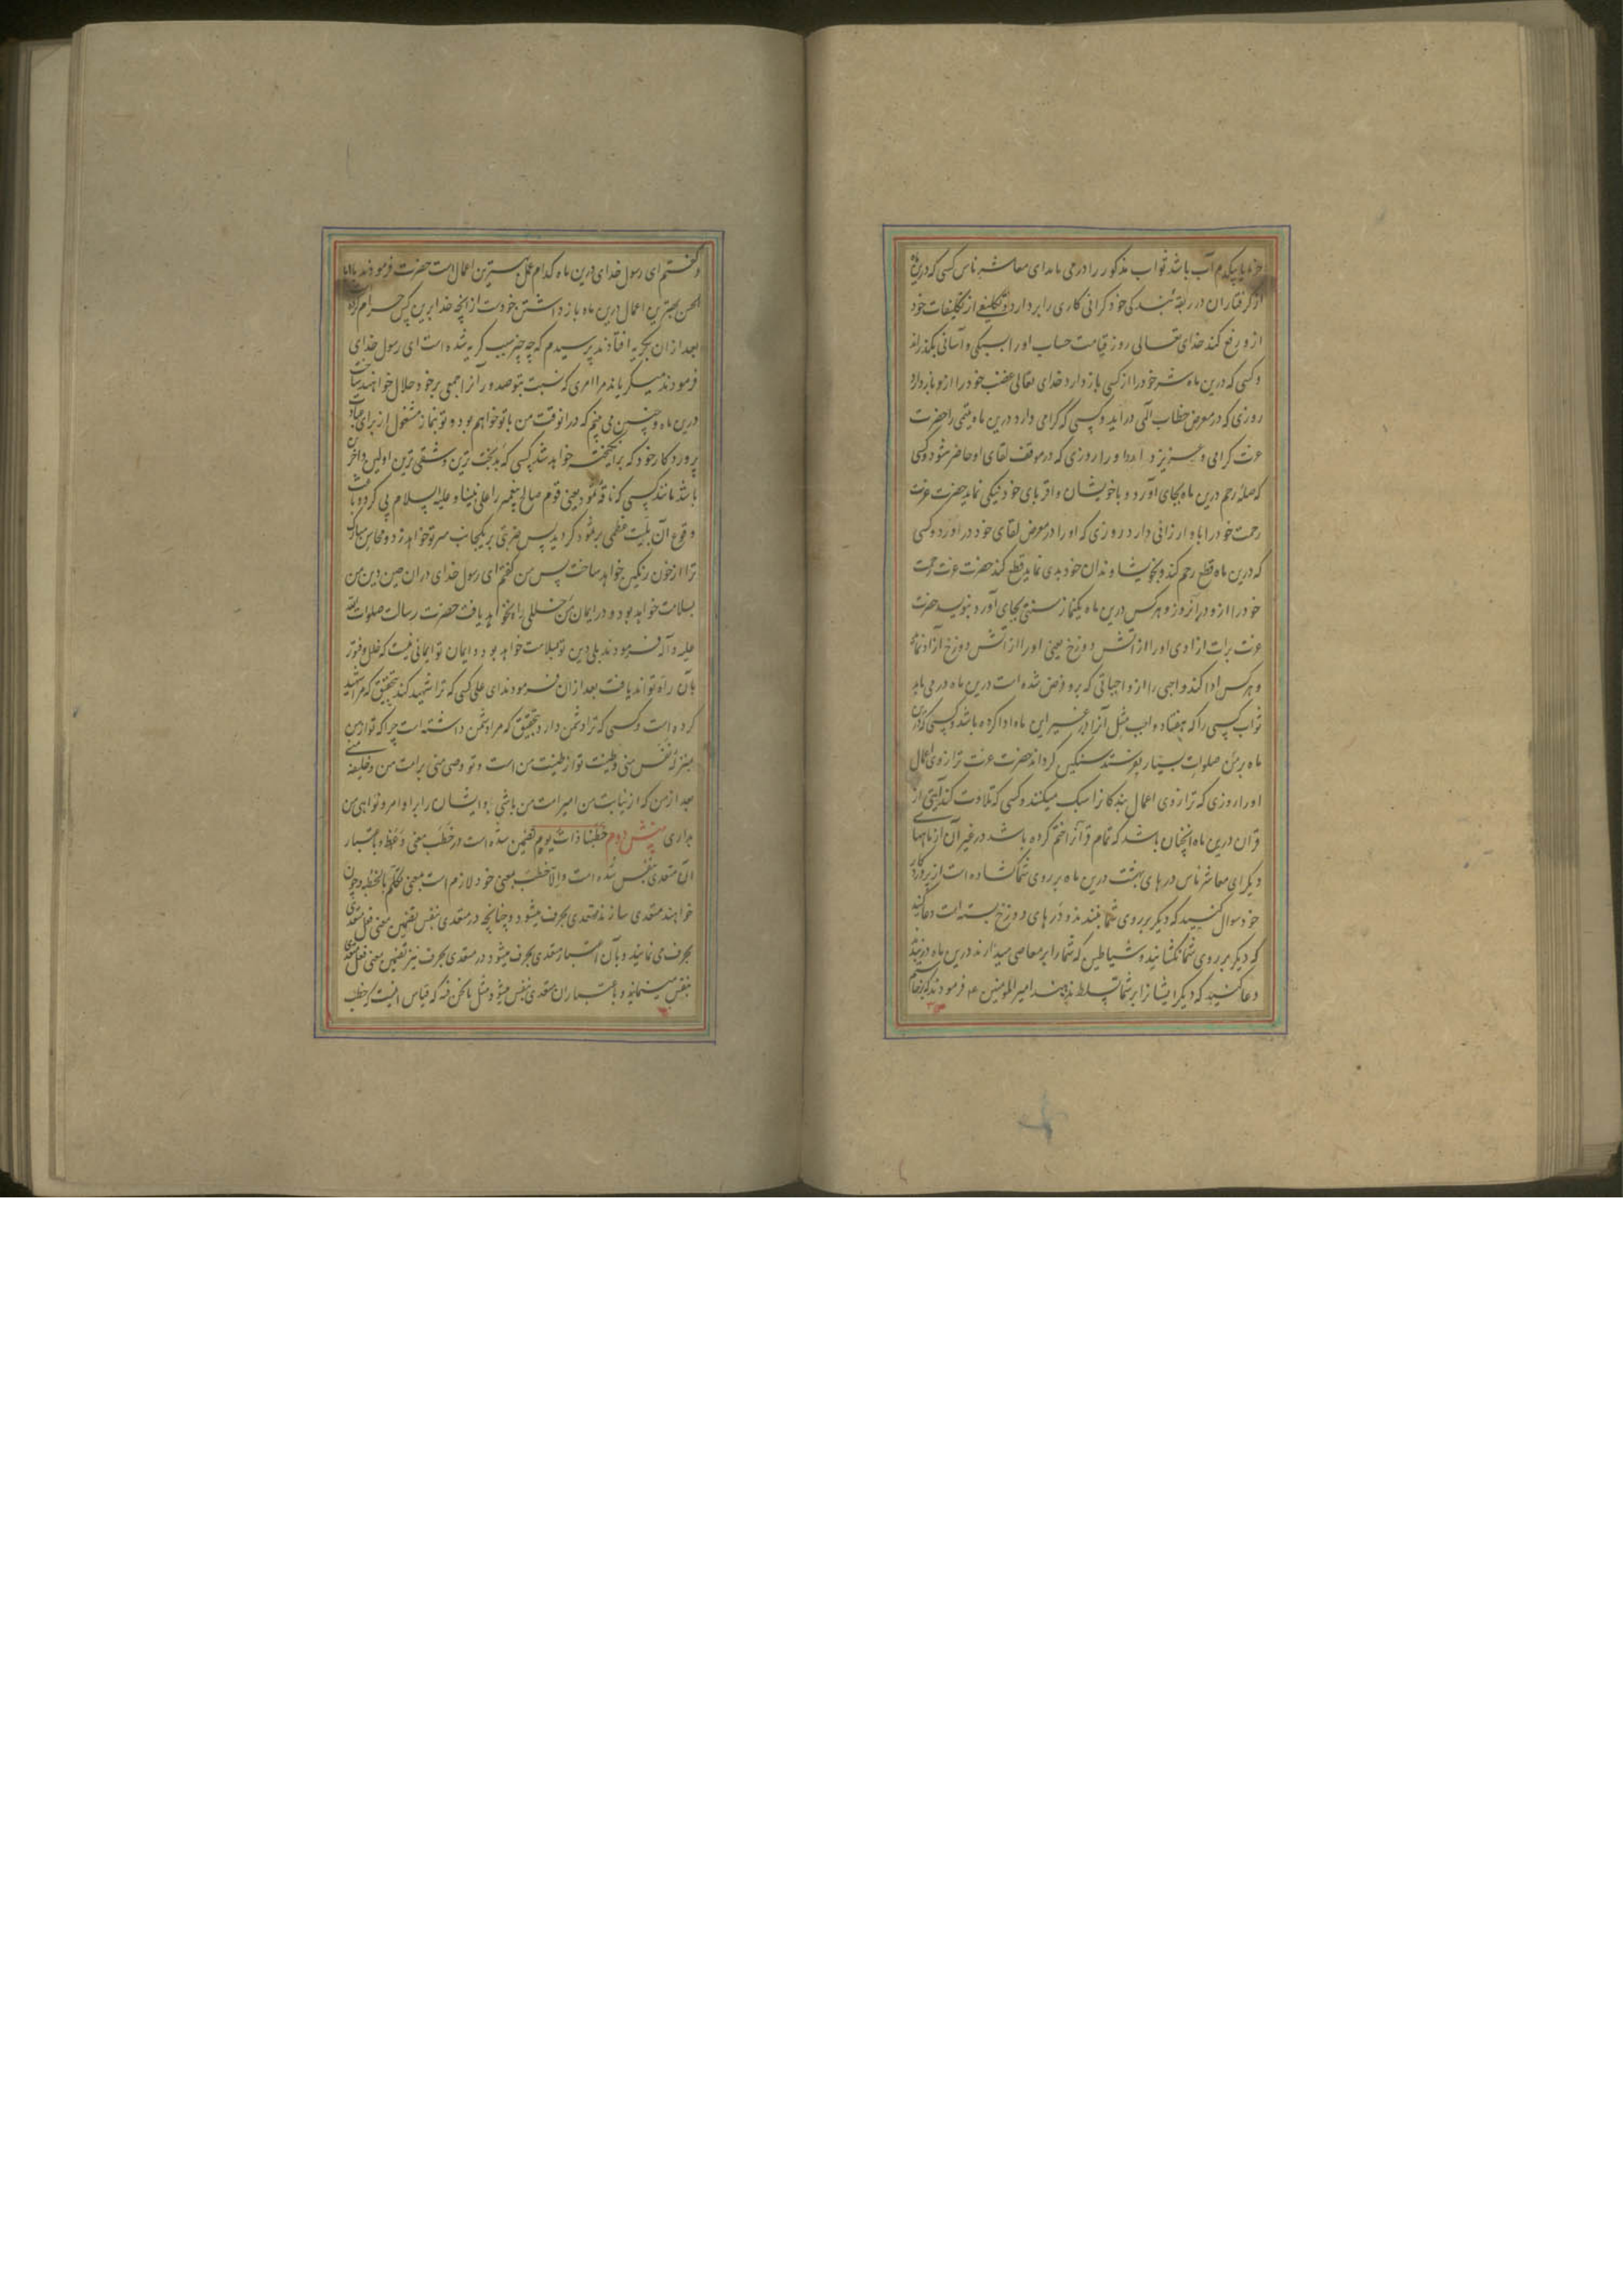 خرما یا بیکدم آب باشد ثواب مذکور را در می یابد ای معاشر ناس کسی که درین ماه
از گرفتاران در ربقه بندگی خود گرانی کاری را بردارد و تکلیفی از تکلیفات خود
ازو رفع کند خدای تعالی روز قیامت حساب او را بسبکی و آسانی بگذراند
و کسی که درین ماه شر خود را از کسی باز دارد خدای تعالی غضب خود را ازو باز دارد
روزی که در معرض خطاب الهی در آید و کسی که گرامی دارد درین ماه یتیمی را حضرت
عزت گرامی و عزیز دارد او را روزی که در موقف لقای او حاضر شود و کسی
که صله رحم درین ماه بجای آورد و با خویشان و اقربای خود نیکی نماید حضرت عزت
رحمت خود را باو ارزانی دارد روزی که او را در معرض لقای خود در آورد و کسی
که درین ماه قطع رحم کند و بخویشاوندان خود بدی نماید قطع کند حضرت عزت رحمت
خود را ازو در آنروز و هر کس درین ماه یکنماز سنتی بجای آورد بنویسد حضرت
عزت برات ازادی او را از آتش دوزخ یعنی او را از آتش دوزخ آزاد نماید
و هر کس ادا کند واجبی را از واجباتی که برو فرض شده است درین ماه در می یابد
ثواب کسی را که هفتاد واجب مثل آنرا در غیر این ماه ادا کرده باشد و کسی که درین
ماه بر من صلوات بسیار بفرستد سنگین گرداند حضرت عزت ترازوی اعمال
او را روزی که ترازوی اعمال بندگانرا سبک میکنند و کسی که تلاوت کند آیتی از
قرآن درین ماه انچنان باشد که تمام قرآنرا ختم کرده باشد در غیر آن از ماهها
دیگر ای معاشر ناس درهای بهشت درین ماه بر روی شما گشاده است از پروردگار
خود سوال کنید که دیگر بر روی شما نبندد و درهای دوزخ بسته است دعا کنید
که دیگر بر روی شما نگشاید و شیاطین که شما را بر معاصی میدارند درین ماه دربندند
دعا کنید که دیگر ایشانرا بر شما تسلط ندهند امیر المومنین ع فرمودند که برخاستم
و گفتم ای رسول خدای درین ماه کدام عمل بهترین اعمال است حضرت فرمودند یا ابا
الحسن بهترین اعمال درین ماه باز داشتن خودست از انچه خدا برین کس حرام کرده
بعد ازان بگریه افتادند پرسیدم که چه چیز سبب گریه شده است ای رسول خدای
فرمودند میگریاند مرا امری که نسبت بتو صدور آنرا جمعی بر خود حلال خواهند ساخت
درین ماه و چنین می بینم که درانوقت من با تو خواهم بود و تو بنماز مشغول از برای عبادت
پروردگار خود که برانگیخته خواهد شد کسی که بدبخت ترین و شقی ترین اولین و آخرین
باشد مانند کسی که ناقه ثمود یعنی قوم صالح پیغمبر را علی نبینا و علیه السلام پی کرد و باعث
وقوع آن بلیت عظمی بر ثمود گردید پس ضربتی بر یکجانب سر تو خواهد زد و محاسن مبارک
ترا از خون رنگین خواهد ساخت پس من گفتم ای رسول خدای دران حین دین من
بسلامت خواهد بود و در ایمان من خللی راه نخواهد یافت حضرت رسالت صلوات الله
علیه و آله فرمودند بلی دین تو بسلامت خواهد بود و ایمان تو ایمانی نیست که خلل و فتور
بآن راه تواند یافت بعد ازان فرمودند ای علی کسی که ترا شهید کند بتحقیق که مرا شهید
کرده است و کسی که ترا دشمن دارد بتحقیق که مرا دشمن داشته است چرا که تو از من
بمنزله نفس منی و طینت تو از طینت من است و تو وصی منی بر امت من و خلیفه منی
بعد از من که از نیابت من امیر امت من باشی و ایشان را بر اوامر و نواهی من
بداری بینش دوم خطبنا ذات یوم تضمین شده است در خطب معنی وعظ و باعتبار
آن متعدی بنفس شده است و الا خطب بمعنی خود لازم است بمعنی تکلم بالخطبه و چون
خواهند متعدی سازند متعدی بحرف میشود و چنانچه در متعدی بنفس تضمین معنی فعل متعدی
بحرف می نمایند و بآن اعتبار متعدی بحرف میشود در متعدی بحرف نیز تضمین معنی فعل متعدی
بنفس مینمایند و باعتبار ان متعدی بنفس میشود مثل مانحن فیه که قیاس اینست که خطب